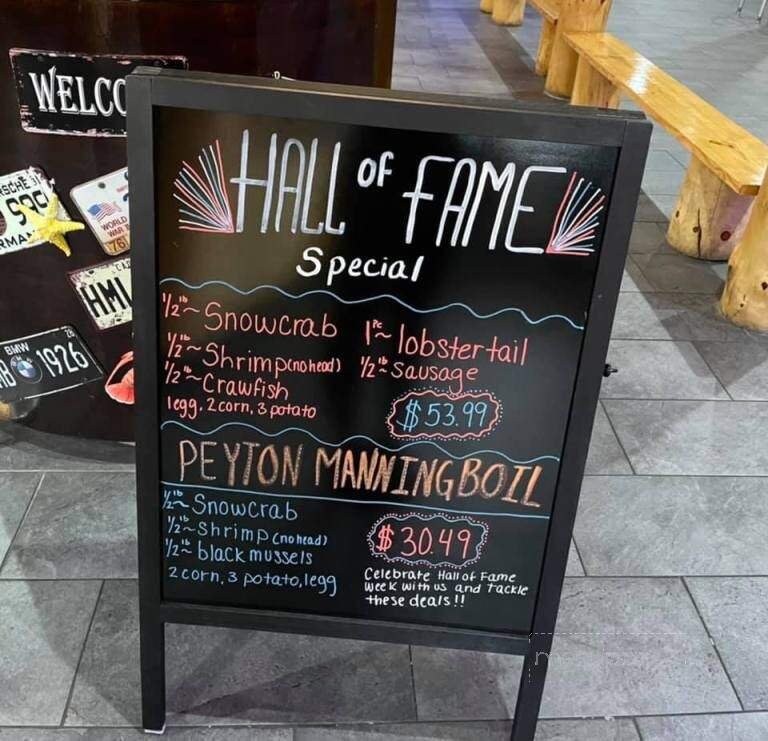 WELCO
HALL OF FAME
Special
1/2 lb~ Snowcrab
1/2 lb~ Shrimp (no head)
1/2 lb~ Crawfish
1egg, 2 corn, 3 potato
1 pc~ lobster tail
1/2 lb~ sausage
$53.99
PEYTON MANNING BOIL
1/2 lb~ Snowcrab
1/2 lb~ Shrimp (no head)
1/2 lb~ black mussels
2 corn, 3 potato, 1egg
$30.49
Celebrate Hall of Fame
Week with us and Tackle
these deals!!
WORLD
WAR II
76
HMI
BMW
1926